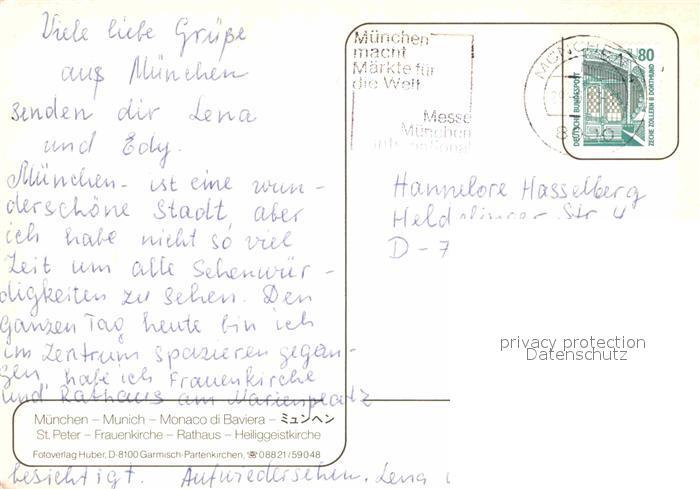 Viele liebe Grüße
aus München
senden dir Lena
und Edy.
München - ist eine wun-
derschöne Stadt, aber
ich habe nicht so viel
Zeit um alle Sehenwür-
digkeiten zu sehen. Den
ganzen Tag heute bin ich
im Zentrum spazieren gegan-
gen, habe ich Frauenkirche
und Rathaus am Marienplatz
München – Munich – Monaco di Baviera – ミュンヘン
St. Peter – Frauenkirche – Rathaus – Heiliggeistkirche
Fotoverlag Huber, D-8100 Garmisch-Partenkirchen, ☎ 08821/59048
besichtigt. Aufwiedersehen, Lena
München
macht
Märkte für
die Welt
Messe
München
international
MÜNCHEN
80
DEUTSCHE BUNDESPOST
ZECHE ZOLLERN II DORTMUND
Hannelore Hasselberg
Str. 4
D-7
privacy protection
Datenschutz